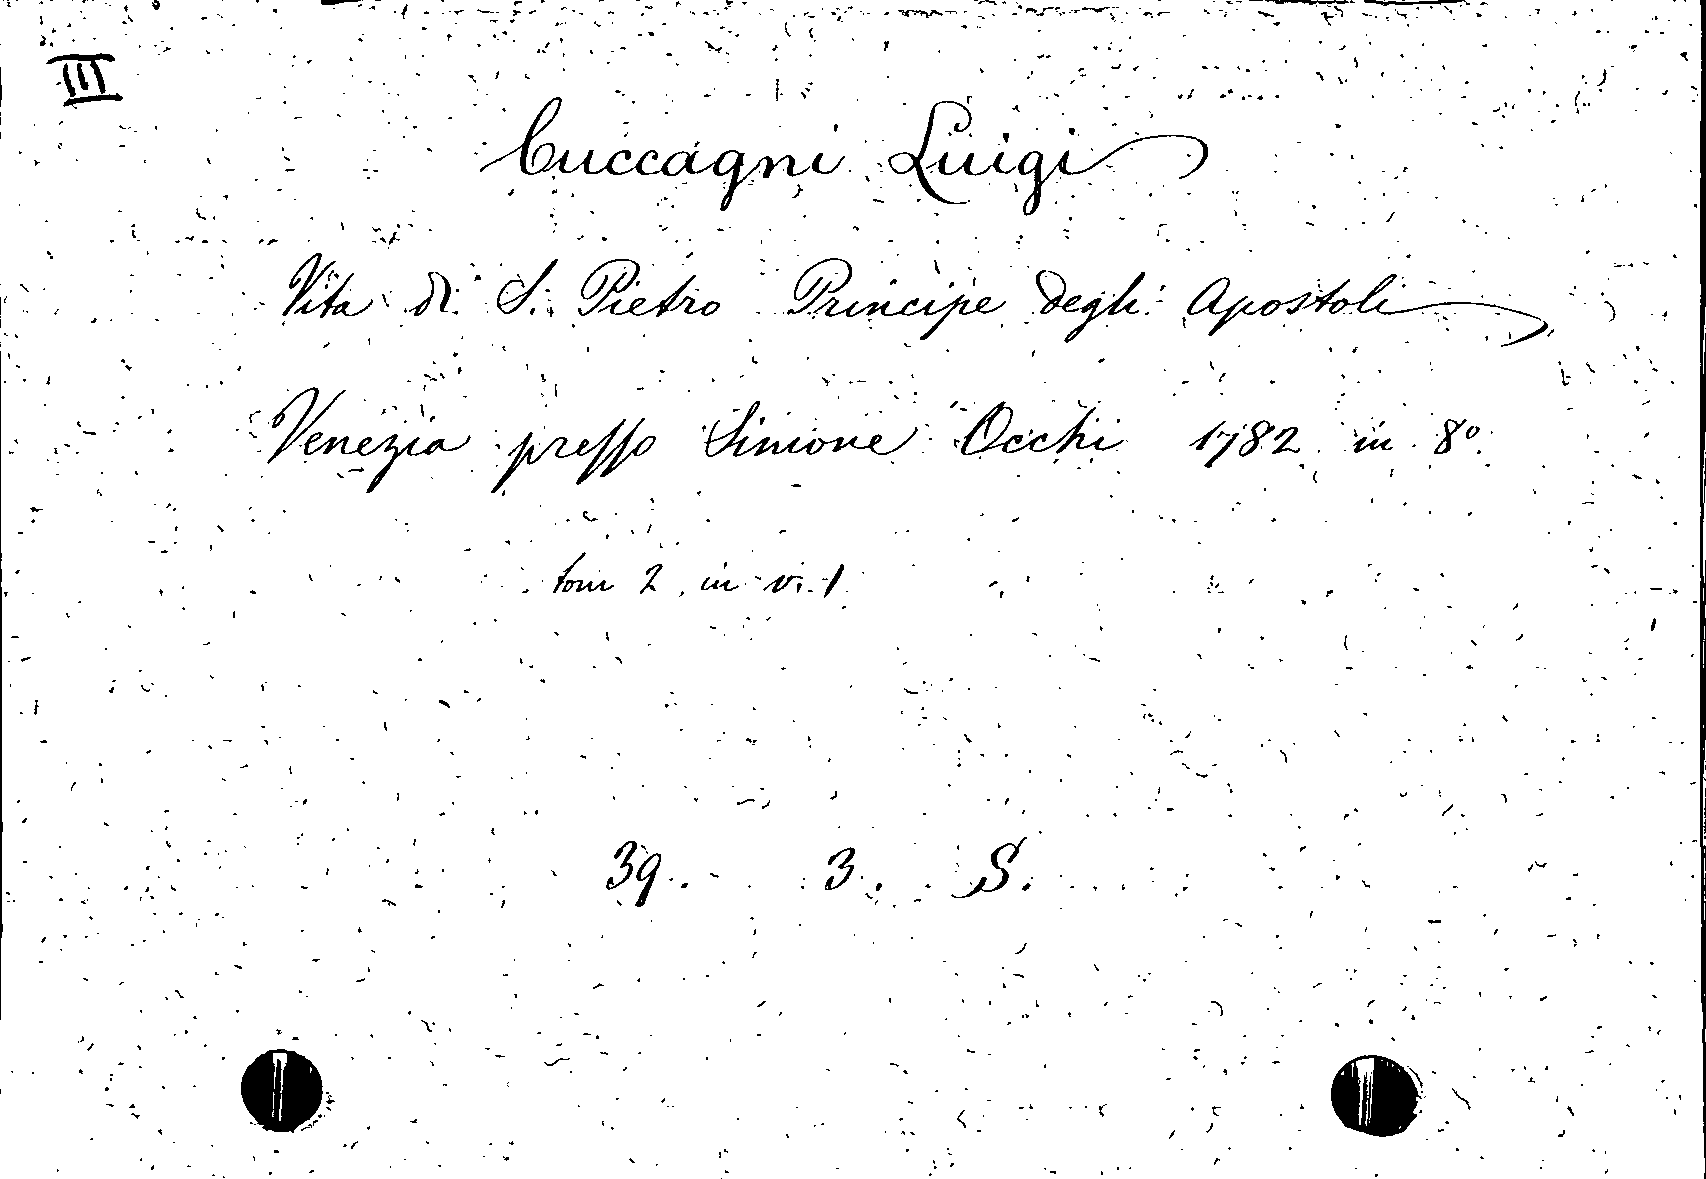 III
Cuccagni Luigi
Vita di S. Pietro Principe degli Apostoli
Venezia presso Simone Occhi 1782 in 8º
tom 2. in v. 1
39. 3. S.